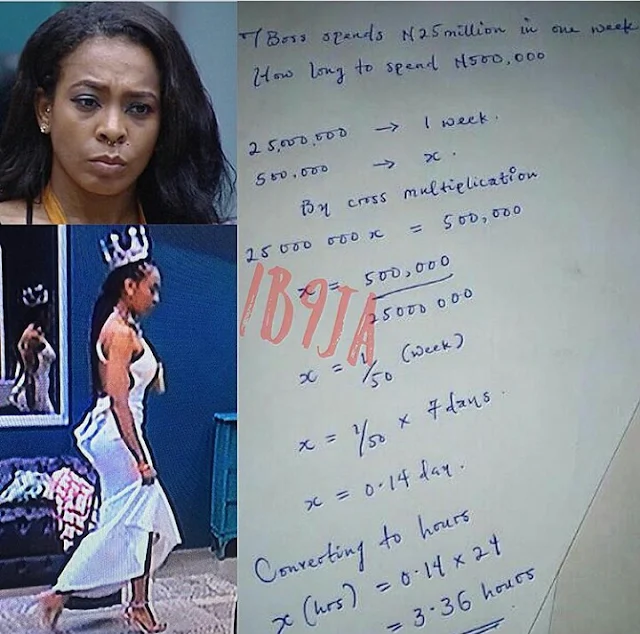 T/Boss spends ₦25 million in one week
How long to spend ₦500,000
25,000,000 → 1 week.
500,000 → x.
By cross multiplication
25 000 000 x = 500,000
x = 500,000
25000 000
x = 1/50 (week)
x = 1/50 × 7 days.
x = 0.14 day.
Converting to hours
x (hrs) = 0.14 × 24
= 3.36 hours
IB9JA